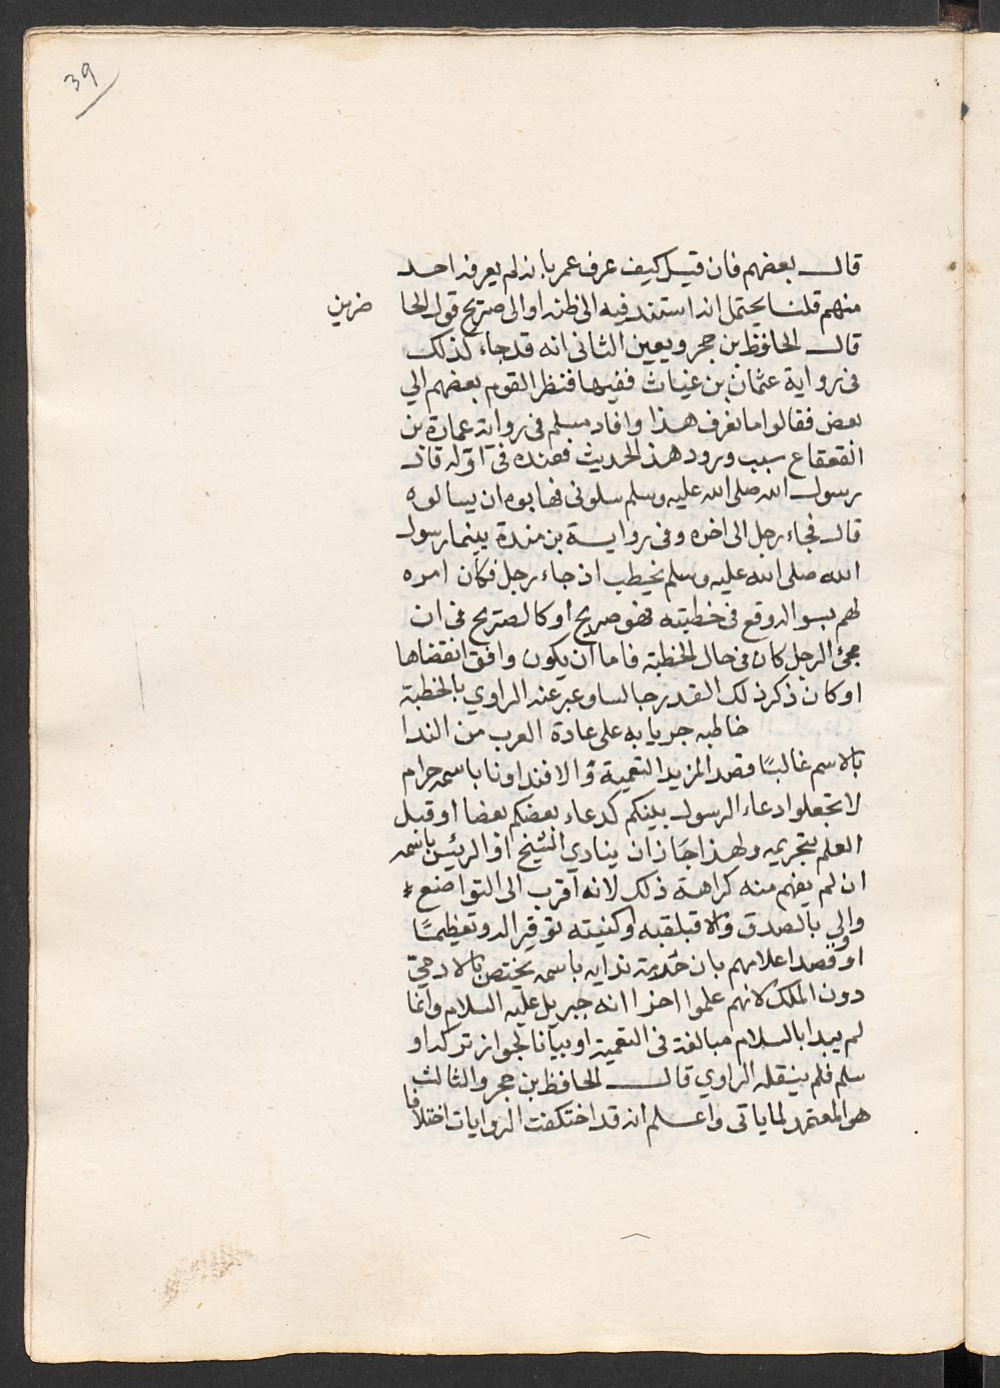 39
قال بعضهم فان قيل كيف عرف عمر بانه لم يعرفه احد
منهم قلنا يحتمل انه استند فيه الى ظنه او الى صريح قول الحا
ضرين
قال الحافظ بن حجر ويعين الثانى انه قد جاء كذلك
فى رواية عثمان بن غياث ففيها فنظر القوم بعضهم الي
بعض فقالوا ما نعرف هذا وافاد مسلم فى رواية عمارة بن
القعقاع سبب ورود هذ الحديث فعنده فى اوله قال
رسول الله صلى الله عليه وسلم سلونى فهابوه ان يسالوه
قال فجاء رجل الى اخره وفى رواية بن مندة بينما رسول
الله صلى الله عليه وسلم يخطب اذ جاء رجل فكان امره
لهم بسواله وقع فى خطبته فهو صريح او كالصريح فى ان
مجئ الرجل كان فى حال الخطبة فاما ان يكون وافق انقضاها
او كان ذكر ذلك القدر جالسا وعبر عنه الراوي بالخطبة
خاطبه جريا به على عادة العرب من الندا
بالاسم غالبًا وقصد المزيد التعمية والا فنداونا باسمه حرام
لا تجعلوا دعاء الرسول بينكم كدعاء بعضكم بعضا او قبل
العلم بتحريمه ولهذا جاز ان ينادي الشيخ او الرئيس باسمه
ان لم يفهم منه كراهة ذلك لانه اقرب الى التواضع
والي بالصدق والا فبلقبه او كنيته توقيرا له وتعظيمًا
او قصد اعلامهم بان حرمة ندايه باسمه يختص بالادمي
دون الملك لانهم علموا اخرا انه جبريل عليه السلام وانما
لم يبدا بالسلام مبالغة فى التعمية او بيانا لجواز تركه او
سلم فلم ينقله الراوي قال الحافظ بن حجر والثالث
هو المعتمد لما ياتى واعلم انه قد اختلفت الروايات اختلافا